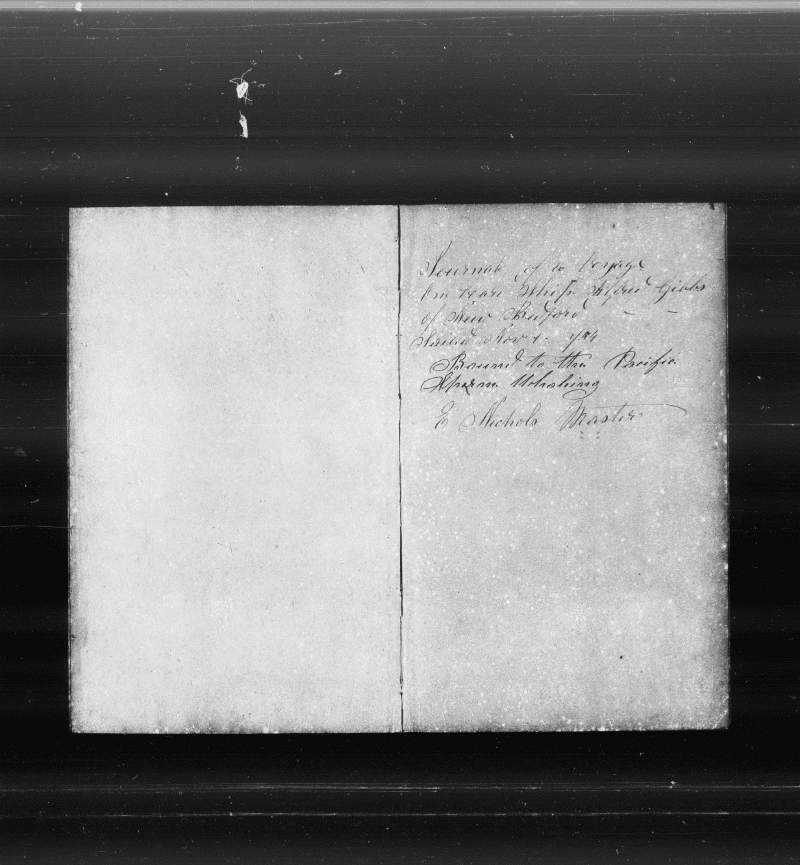 Journal of a Voyage
On board Ship Alfred Gibbs
of New Bedford
Sailed Nov
Bound to the Pacific
Sperm Whaling
E Nichols Master